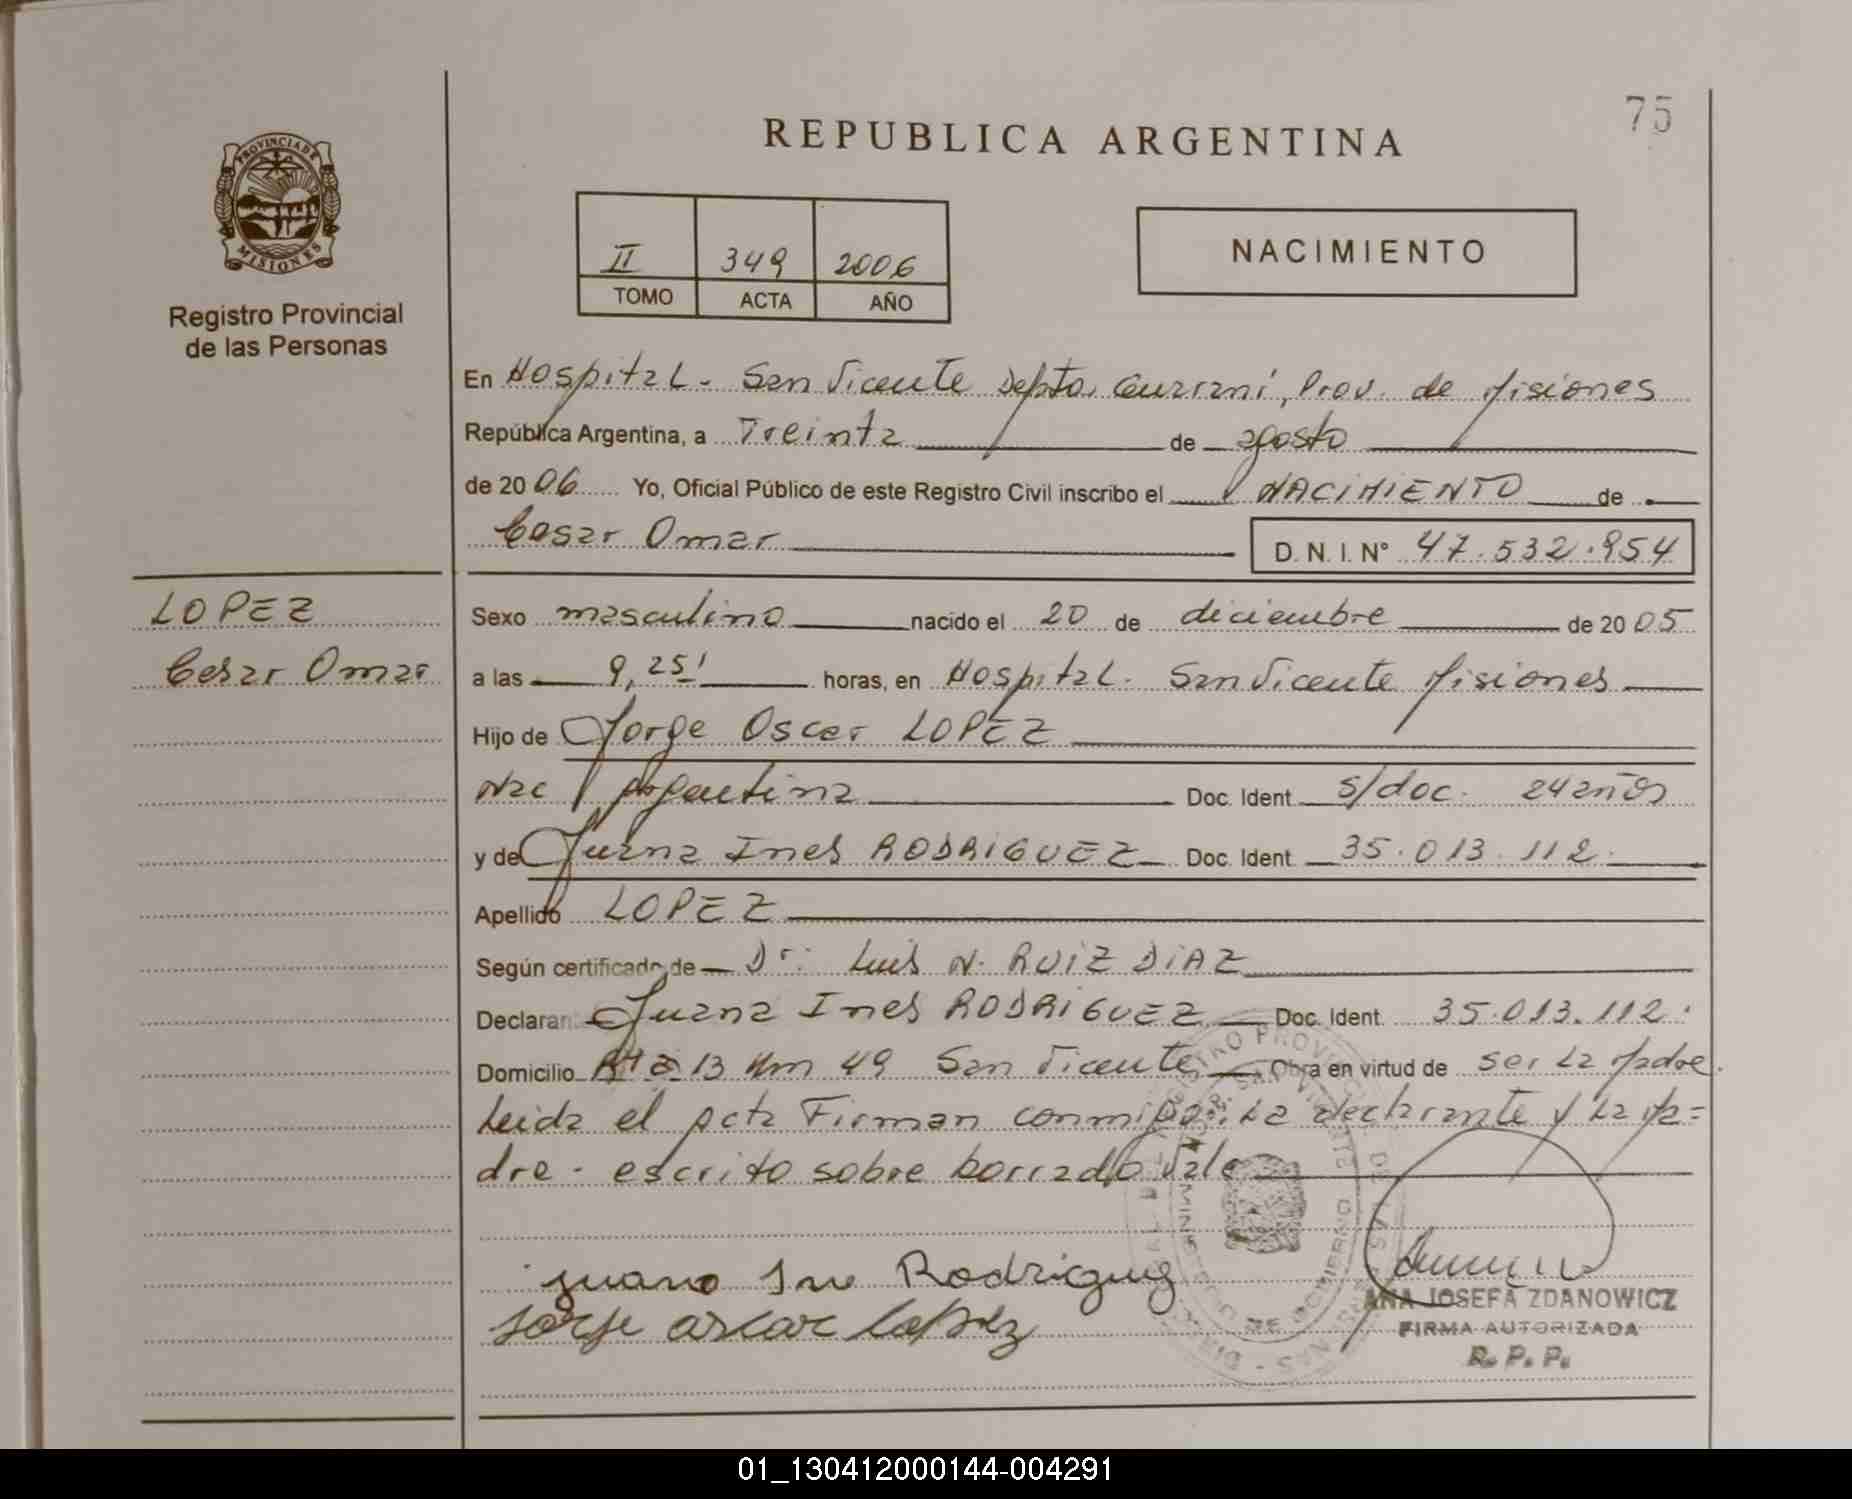 75
REPUBLICA ARGENTINA
PROVINCIA DE
MISIONES
Registro Provincial
de las Personas
II 349 2006
TOMO ACTA AÑO
NACIMIENTO
En Hospital - San Vicente Depto. Guarani, Prov. de Misiones
República Argentina, a Treinta de agosto
de 2006 Yo, Oficial Público de este Registro Civil inscribo el NACIMIENTO de
Cesar Omar D. N. I. N° 47.532.954
LOPEZ
Cesar Omar
Sexo masculino nacido el 20 de diciembre de 2005
a las 9,25' horas, en Hospital - San Vicente Misiones
Hijo de Jorge Oscar LOPEZ
Nac Argentina Doc. Ident. s/doc. 24 años
y de Juana Ines RODRIGUEZ Doc. Ident. 35.013.112.
Apellido LOPEZ
Según certificado de Dr: Luis N. RUIZ DIAZ
Declaran Juana Ines RODRIGUEZ Doc. Ident. 35.013.112.
Domicilio Rta 13 Km 49 San Vicente Obra en virtud de ser la Madre.
Leida el acta Firman conmigo: La declarante y La Pa=
dre - escrito sobre borrado Vale
juana Ine Rodriguez
Jorje oscar lopez
ANA JOSEFA ZDANOWICZ
FIRMA AUTORIZADA
R. P. P.
01_130412000144-004291